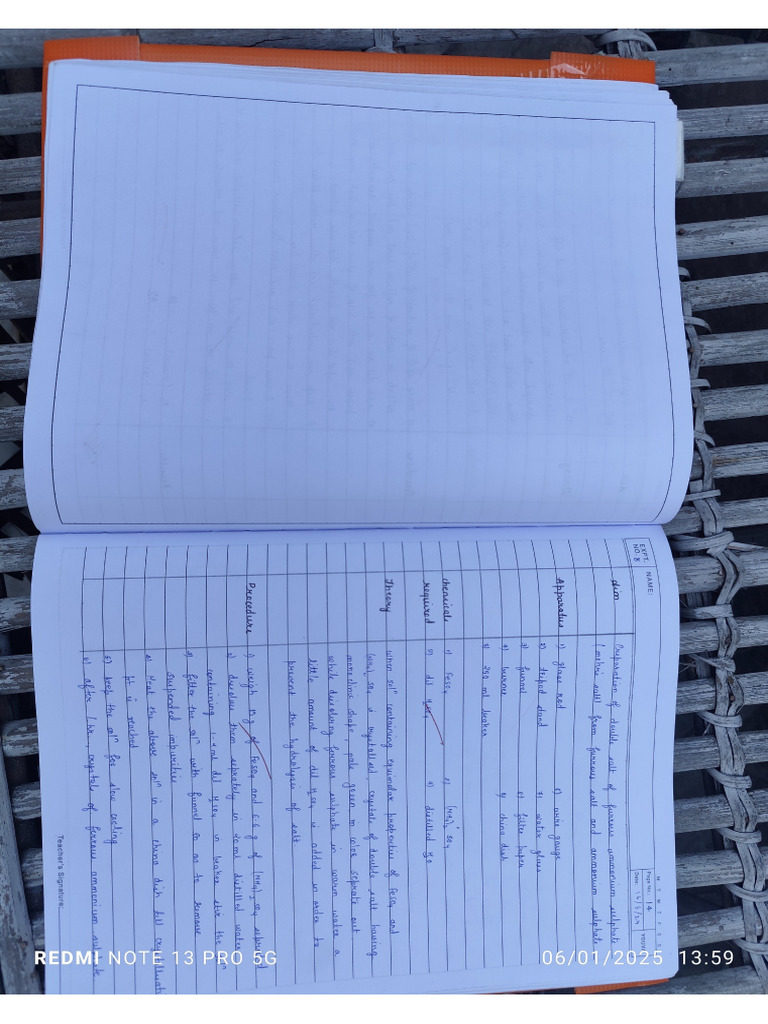 EXPT. NO. 8
NAME:
Page No.: 14
Date:
YOUVA
Aim
Preparation of double salt of ferrous ammonium sulphate
(mohr's salt) from ferrous salt and ammonium sulphate
Apparatus
1) glass rod
2) tripod stand
3) funnel
4) burner
5) wire gauge
6) filter paper
7) water glass
8) 250 ml beaker
9) china dish
chemicals required
1) FeSO4
2) (NH4)2 SO4
3) dil H2SO4
4) distilled H2O
Theory
when solⁿ containing equimolar properties of FeSO4 and
(NH4)2 SO4 is crystallised, crystal of double salt having
monoclinic shape, pale green in color seprate out
while dissolving ferrous sulphate in warm water a
little amount of dil H2SO4 is added in order to
prevent the hydrolysis of salt
Procedure
1) weigh 13 g of FeSO4 and 6.6 g of (NH4)2 SO4
2) dissolve them seprately in 20 ml distilled water
containing 1-4 ml dil H2SO4 in beaker stir the solⁿ
3) filter the solⁿ with funnel so as to remove
suspended impurities
4) Heat the above solⁿ in a china dish till
pt is reached
5) keep the solⁿ for slow cooling
6) after 1 hr, crystals of ferrous ammonium
Teacher's Signature:
REDMI NOTE 13 PRO 5G
06/01/2025 13:59